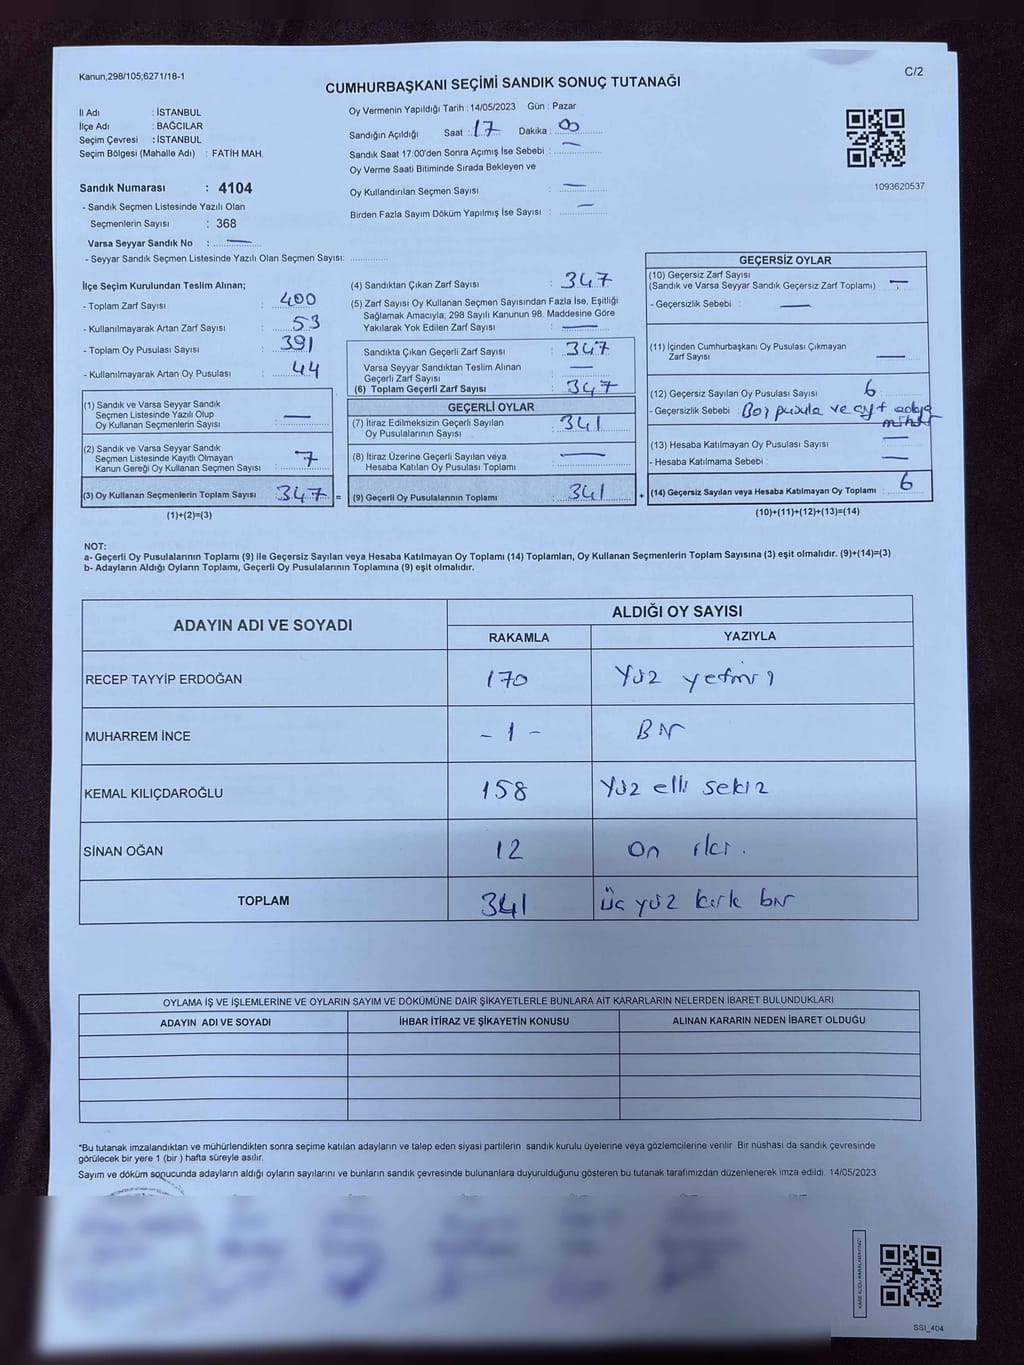 Kanun;298/105;6271/18-1
C/2
CUMHURBAŞKANI SEÇİMİ SANDIK SONUÇ TUTANAĞI
İl Adı : İSTANBUL
İlçe Adı : BAĞCILAR
Seçim Çevresi : İSTANBUL
Seçim Bölgesi (Mahalle Adı) : FATİH MAH.
Sandık Numarası : 4104
- Sandık Seçmen Listesinde Yazılı Olan
Seçmenlerin Sayısı : 368
Varsa Seyyar Sandık No : —
- Seyyar Sandık Seçmen Listesinde Yazılı Olan Seçmen Sayısı:
Oy Vermenin Yapıldığı Tarih : 14/05/2023 Gün : Pazar
Sandığın Açıldığı Saat : 17 Dakika : 00
Sandık Saat 17:00'den Sonra Açımış İse Sebebi : —
Oy Verme Saati Bitiminde Sırada Bekleyen ve
Oy Kullandırılan Seçmen Sayısı : —
Birden Fazla Sayım Döküm Yapılmış İse Sayısı : —
1093620537
İlçe Seçim Kurulundan Teslim Alınan;
- Toplam Zarf Sayısı : 400
- Kullanılmayarak Artan Zarf Sayısı : 53
- Toplam Oy Pusulası Sayısı : 391
- Kullanılmayarak Artan Oy Pusulası : 44
(1) Sandık ve Varsa Seyyar Sandık
Seçmen Listesinde Yazılı Olup
Oy Kullanan Seçmenlerin Sayısı : —
(2) Sandık ve Varsa Seyyar Sandık
Seçmen Listesinde Kayıtlı Olmayan
Kanun Gereği Oy Kullanan Seçmen Sayısı : 7
(3) Oy Kullanan Seçmenlerin Toplam Sayısı : 347 =
(1)+(2)=(3)
(4) Sandıktan Çıkan Zarf Sayısı : 347
(5) Zarf Sayısı Oy Kullanan Seçmen Sayısından Fazla İse, Eşitliği
Sağlamak Amacıyla, 298 Sayılı Kanunun 98. Maddesine Göre
Yakılarak Yok Edilen Zarf Sayısı : —
Sandıkta Çıkan Geçerli Zarf Sayısı : 347
Varsa Seyyar Sandıktan Teslim Alınan
Geçerli Zarf Sayısı : —
(6) Toplam Geçerli Zarf Sayısı : 347
GEÇERLİ OYLAR
(7) İtiraz Edilmeksizin Geçerli Sayılan
Oy Pusulalarının Sayısı : 341
(8) İtiraz Üzerine Geçerli Sayılan veya
Hesaba Katılan Oy Pusulası Toplamı : —
(9) Geçerli Oy Pusulalarının Toplamı : 341 +
GEÇERSİZ OYLAR
(10) Geçersiz Zarf Sayısı
(Sandık ve Varsa Seyyar Sandık Geçersiz Zarf Toplamı) : —
- Geçersizlik Sebebi : —
(11) İçinden Cumhurbaşkanı Oy Pusulası Çıkmayan
Zarf Sayısı : —
(12) Geçersiz Sayılan Oy Pusulası Sayısı : 6
- Geçersizlik Sebebi : Boş pusula ve çift adaya
mühür
(13) Hesaba Katılmayan Oy Pusulası Sayısı : —
- Hesaba Katılmama Sebebi : —
(14) Geçersiz Sayılan veya Hesaba Katılmayan Oy Toplamı : 6
(10)+(11)+(12)+(13)=(14)
NOT:
a- Geçerli Oy Pusulalarının Toplamı (9) ile Geçersiz Sayılan veya Hesaba Katılmayan Oy Toplamı (14) Toplamları, Oy Kullanan Seçmenlerin Toplam Sayısına (3) eşit olmalıdır. (9)+(14)=(3)
b- Adayların Aldığı Oyların Toplamı, Geçerli Oy Pusulalarının Toplamına (9) eşit olmalıdır.
ADAYIN ADI VE SOYADI ALDIĞI OY SAYISI
RAKAMLA YAZIYLA
RECEP TAYYİP ERDOĞAN 170 Yüz yetmiş
MUHARREM İNCE - 1 - Bir
KEMAL KILIÇDAROĞLU 158 Yüz elli sekiz
SİNAN OĞAN 12 On iki.
TOPLAM 341 Üç yüz kırk bir
OYLAMA İŞ VE İŞLEMLERİNE VE OYLARIN SAYIM VE DÖKÜMÜNE DAİR ŞİKAYETLERLE BUNLARA AİT KARARLARIN NELERDEN İBARET BULUNDUKLARI
ADAYIN ADI VE SOYADI İHBAR İTİRAZ VE ŞİKAYETİN KONUSU ALINAN KARARIN NEDEN İBARET OLDUĞU
*Bu tutanak imzalandıktan ve mühürlendikten sonra seçime katılan adayların ve talep eden siyasi partilerin sandık kurulu üyelerine veya gözlemcilerine verilir Bir nüshası da sandık çevresinde
görülecek bir yere 1 (bir ) hafta süreyle asılır.
Sayım ve döküm sonucunda adayların aldığı oyların sayılarını ve bunların sandık çevresinde bulunanlara duyurulduğunu gösteren bu tutanak tarafımızdan düzenlenerek imza edildi. 14/05/2023
SSİ_404